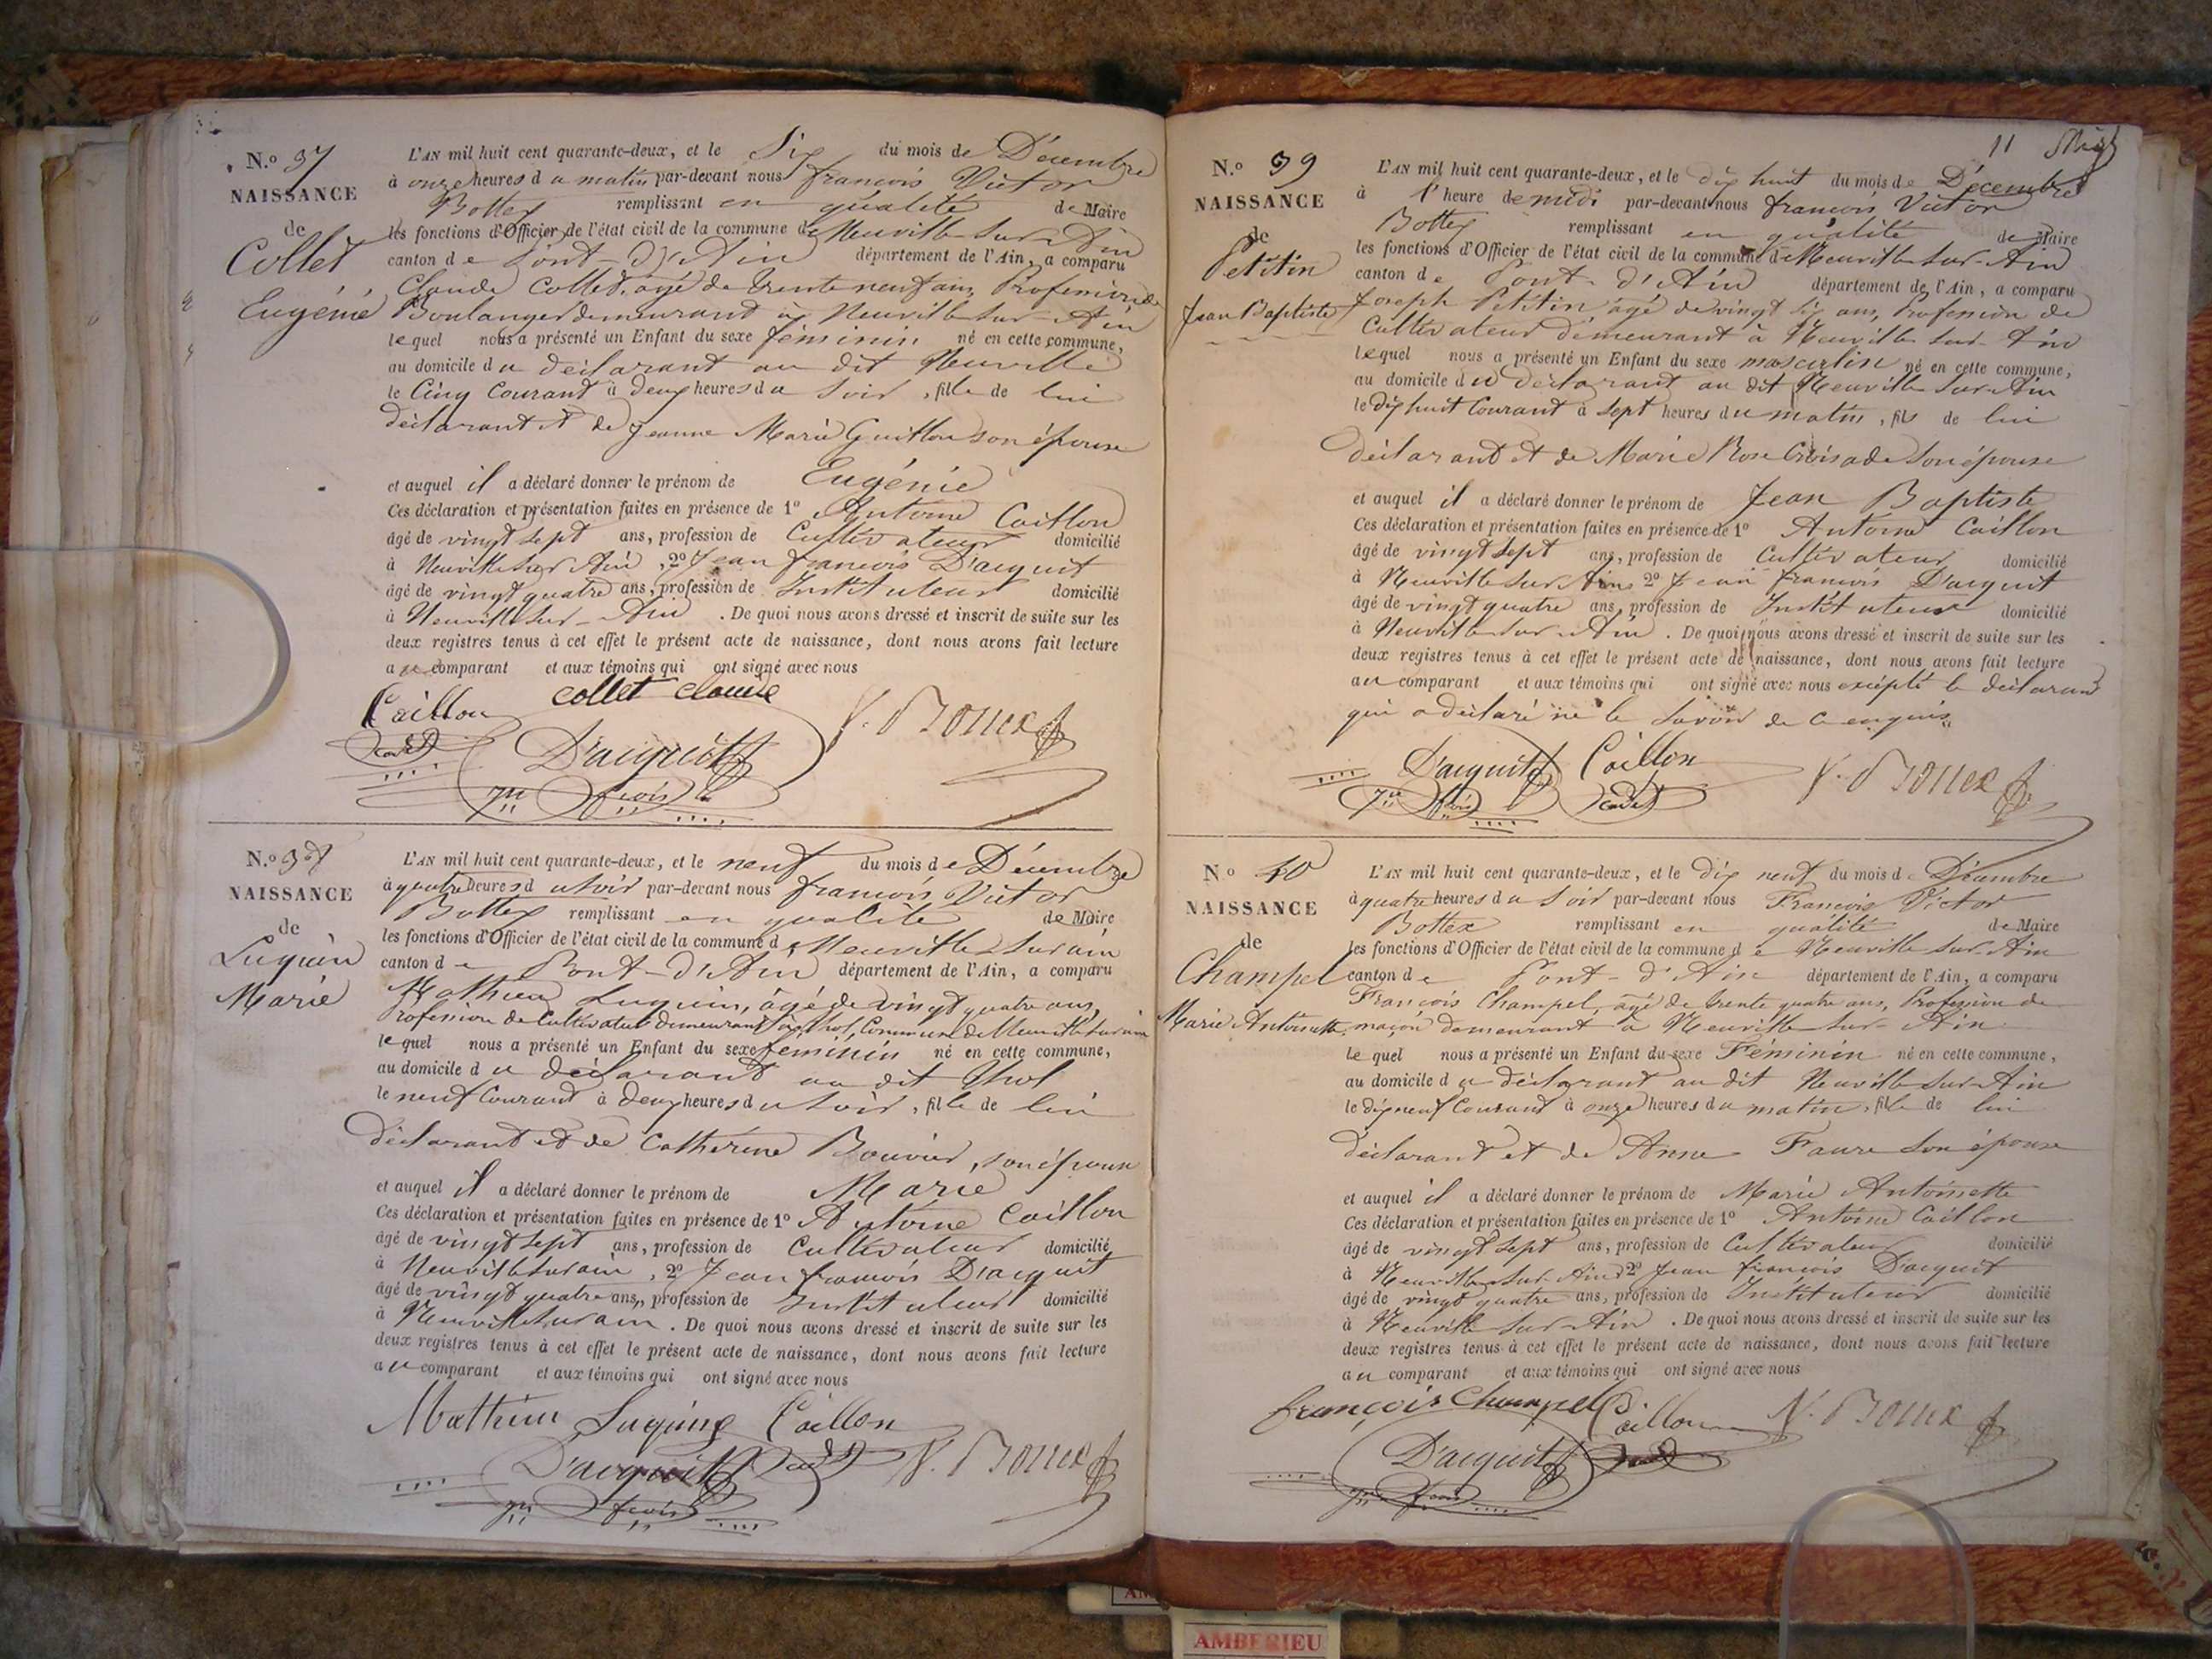 N.o 37
NAISSANCE
de
Collet
Eugénie
L'AN mil huit cent quarante-deux, et le Six du mois de Décembre
à onze heures du matin par-devant nous françois Victor
Bottex remplissant en qualité de Maire
les fonctions d'Officier de l'état civil de la commune de Neuville sur Ain
canton de Pont-d'Ain département de l'Ain, a comparu
Claude Collet, agé de trente neuf ans, Profession de
Boulanger demeurant à Neuville sur Ain
lequel nous a présenté un Enfant du sexe féminin né en cette commune,
au domicile du déclarant au dit Neuville
le Cinq Courant à deux heures du soir, fille de lui
déclarant et de Jeanne Marie Guillon son épouse
et auquel il a déclaré donner le prénom de Eugénie
Ces déclaration et présentation faites en présence de 1o Antoine Caillon
âgé de vingt sept ans, profession de Cultivateur domicilié
à Neuville sur Ain, 2o Jean françois D'acquit
âgé de vingt quatre ans, profession de Instituteur domicilié
à Neuville sur Ain. De quoi nous avons dressé et inscrit de suite sur les
deux registres tenus à cet effet le présent acte de naissance, dont nous avons fait lecture
au comparant et aux témoins qui ont signé avec nous
Caillon collet claude V. Bottex
cadet D'acquit
N.o 38
NAISSANCE
de
Luquin
Marie
L'AN mil huit cent quarante-deux, et le neuf du mois de Décembre
à quatre heures du soir par-devant nous françois Victor
Bottex remplissant en qualité de Maire
les fonctions d'Officier de l'état civil de la commune de Neuville sur ain
canton de Pont-d'Ain département de l'Ain, a comparu
Mathieu Luquin, âgé de vingt quatre ans,
Profession de Cultivateur demeurant à Thol, Commune de Neuville sur ain
lequel nous a présenté un Enfant du sexe féminin né en cette commune,
au domicile du déclarant au dit Thol
le neuf Courant à deux heures du soir, fille de lui
déclarant et de Catherine Bouvier, son épouse
et auquel il a déclaré donner le prénom de Marie
Ces déclaration et présentation faites en présence de 1o Antoine Caillon
âgé de vingt sept ans, profession de Cultivateur domicilié
à Neuville sur ain, 2o Jean françois D'acquit
âgé de vingt quatre ans, profession de Instituteur domicilié
à Neuville sur ain. De quoi nous avons dressé et inscrit de suite sur les
deux registres tenus à cet effet le présent acte de naissance, dont nous avons fait lecture
au comparant et aux témoins qui ont signé avec nous
Mathieu Luquin Caillon
D'acquit cadet V. Bottex
11
N.o 39
NAISSANCE
de
Petitin
Jean Baptiste
L'AN mil huit cent quarante-deux, et le dix huit du mois de Décembre
à l'heure de midi par-devant nous françois Victor
Bottex remplissant en qualité de Maire
les fonctions d'Officier de l'état civil de la commune de Neuville sur-Ain
canton de Pont-d'Ain département de l'Ain, a comparu
Joseph Petitin âgé de vingt six ans, Profession de
Cultivateur demeurant à Neuville sur-Ain
lequel nous a présenté un Enfant du sexe masculin né en cette commune,
au domicile du déclarant au dit Neuville sur-Ain
le dix huit Courant à sept heures du matin, fils de lui
déclarant et de Marie Rose Croisade son épouse
et auquel il a déclaré donner le prénom de Jean Baptiste
Ces déclaration et présentation faites en présence de 1o Antoine Caillon
âgé de vingt sept ans, profession de Cultivateur domicilié
à Neuville sur Ain, 2o Jean françois D'acquit
âgé de vingt quatre ans, profession de Instituteur domicilié
à Neuville sur-Ain. De quoi nous avons dressé et inscrit de suite sur les
deux registres tenus à cet effet le présent acte de naissance, dont nous avons fait lecture
au comparant et aux témoins qui ont signé avec nous excépté le déclarant
qui a déclaré ne le savoir de ce enquis
D'acquit Caillon V. Bottex
cadet
No 40
NAISSANCE
de
Champel
Marie Antoinette
L'AN mil huit cent quarante-deux, et le dix neuf du mois de Décembre
à quatre heures du soir par-devant nous François Victor
Bottex remplissant en qualité de Maire
les fonctions d'Officier de l'état civil de la commune de Neuville sur-Ain
canton de Pont-d'Ain département de l'Ain, a comparu
François Champel, âgé de trente quatre ans, Profession de
maçon demeurant à Neuville sur-Ain
lequel nous a présenté un Enfant du sexe Féminin né en cette commune,
au domicile du déclarant au dit Neuville sur Ain
le dix neuf Courant à onze heures du matin, fille de lui
déclarant et de Anne Faure son épouse
et auquel il a déclaré donner le prénom de Marie Antoinette
Ces déclaration et présentation faites en présence de 1o Antoine Caillon
âgé de vingt sept ans, profession de Cultivateur domicilié
à Neuville sur-Ain 2o Jean françois D'acquit
âgé de vingt quatre ans, profession de Instituteur domicilié
à Neuville sur Ain. De quoi nous avons dressé et inscrit de suite sur les
deux registres tenus à cet effet le présent acte de naissance, dont nous avons fait lecture
au comparant et aux témoins qui ont signé avec nous
françois Champel Caillon V. Bottex
D'acquit cadet
AMBERIEU